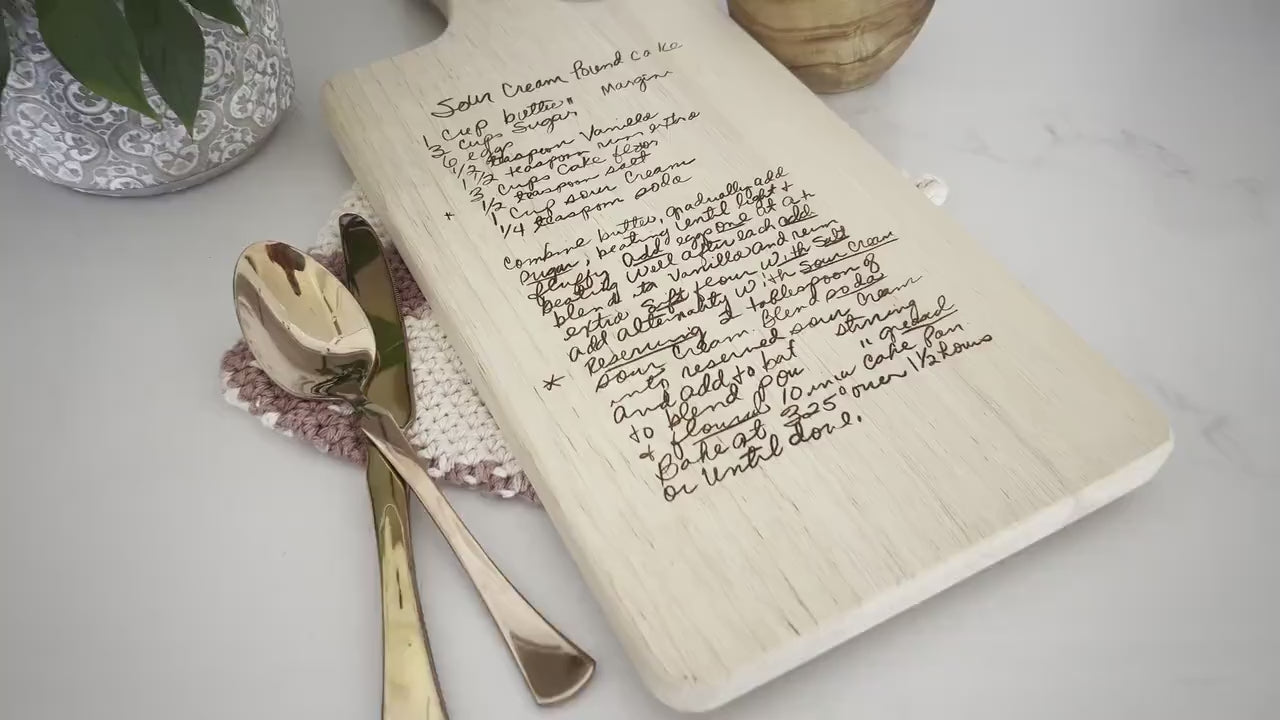 Sour Cream Pound Cake
1 cup butter " Margine
3 cups Sugar
6 egg
1/2 teaspoon Vanilla
1 1/2 teaspoon rum extra
3 cups Cake flour
1/2 teaspoon salt
* 1 cup sour cream
1/4 teaspoon soda
combine butter, gradually add
sugar, beating until light +
fluffy Add egg one at a t
beating well after each add
blend in Vanilla and rum
extra Sift flour with Salt
add alternality with Sour Cream
Reserving 2 tablespoon of
* sour cream. Blend soda
into reserved sour cream
and add to bat stirring
to blend pou " greased
+ floused 10 in cake Pan.
Bake at 325° over 1 1/2 hours
or until done.